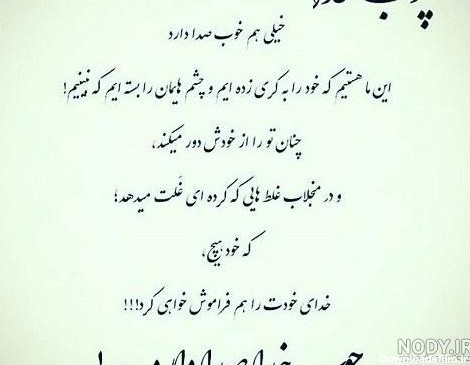 خیلی هم خوب صدا دارد
این ما هستیم که خود را به کری زده ایم و چشم هایمان را بسته ایم که نبینیم!
چنان تو را از خودش دور میکند،
و در منجلاب غلط هایی که کرده ای غَلت میدهد؛
که خود هیچ،
خدای خودت را هم فراموش خواهی کرد!!!
NODY.IR